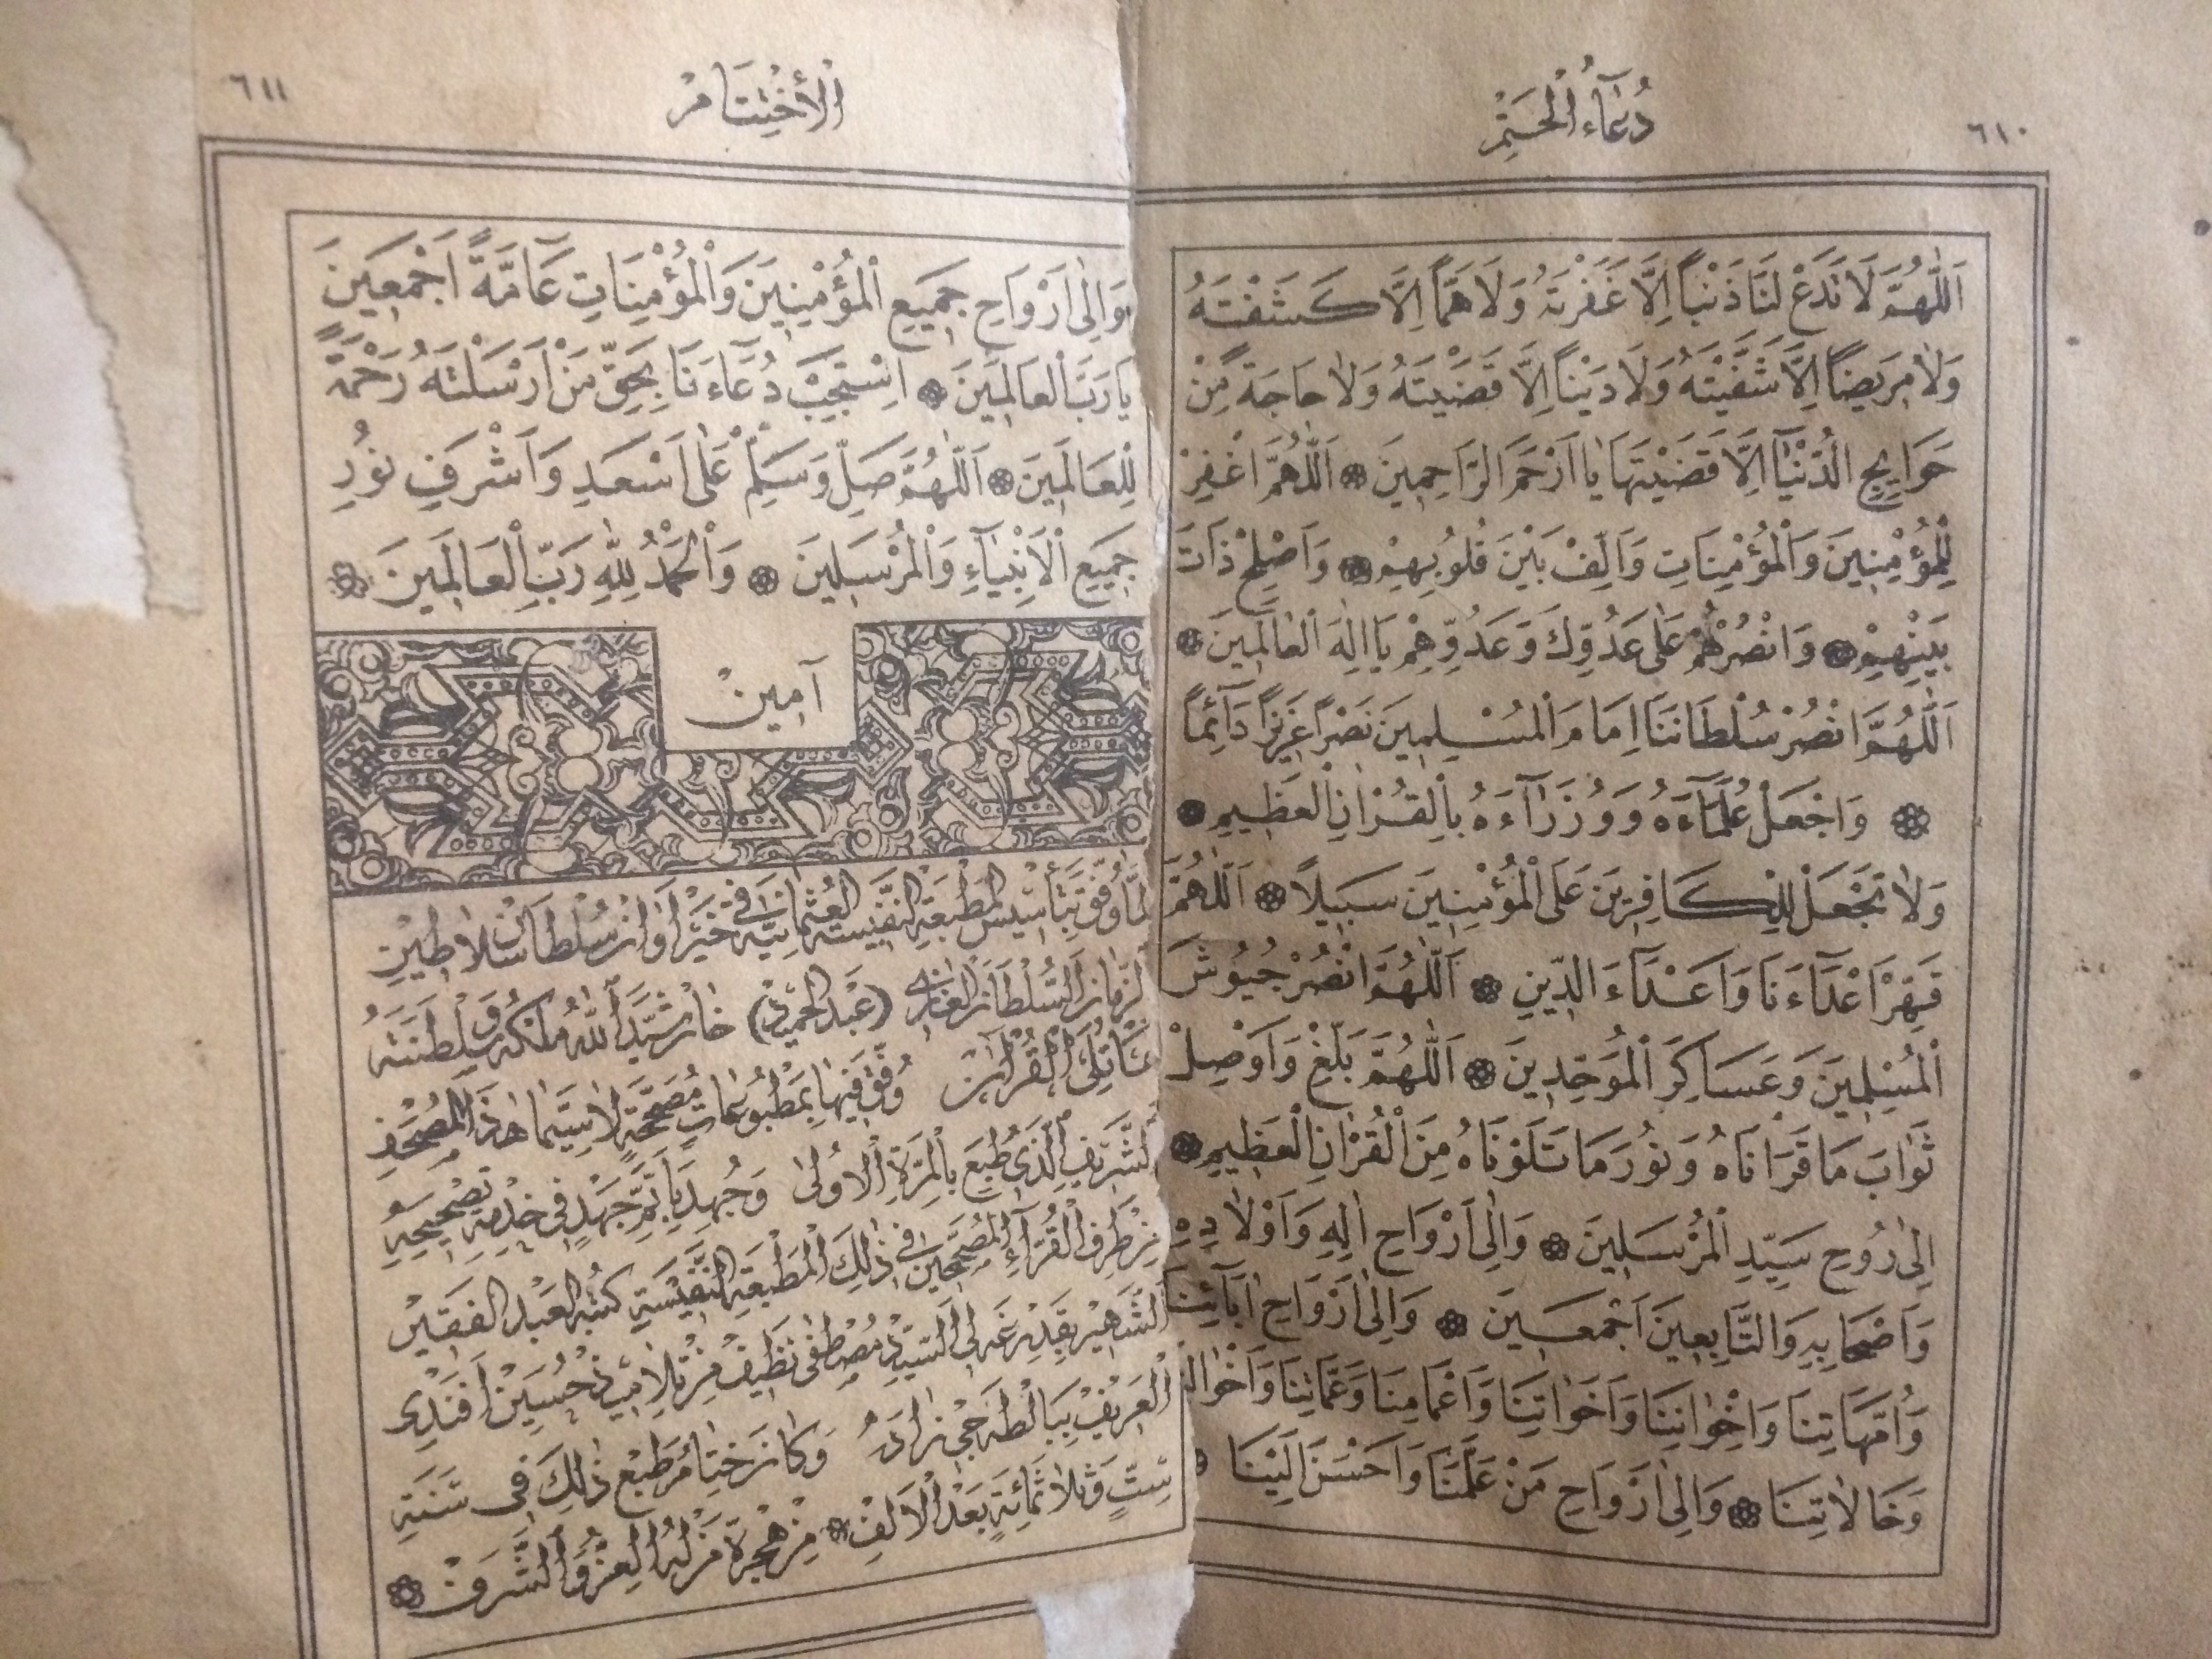 ٦١٠
دُعَآءُ الْخَتِمْ
اَللّٰهُمَّ لَا تَدَعْ لَنَا ذَنْبًا اِلَّا غَفَرْتَهُ وَلَا هَمًّا اِلَّا كَشَفْتَهُ
وَلَا مَرِيضًا اِلَّا شَفَيْتَهُ وَلَا دَيْنًا اِلَّا قَضَيْتَهُ وَلَا حَاجَةً مِنْ
حَوَايِجِ الدُّنْيَآ اِلَّا قَضَيْتَهَا يَا اَرْحَمَ الرَّاحِمِينَ ❁ اَللّٰهُمَّ اغْفِرْ
لِلْمُؤْمِنِينَ وَالْمُؤْمِنَاتِ وَاَلِّفْ بَيْنَ قُلُوبِهِمْ ❁ وَاَصْلِحْ ذَاتَ
بَيْنِهِمْ ❁ وَانْصُرْهُمْ عَلٰى عَدُوِّكَ وَعَدُوِّهِمْ يَا اِلٰهَ الْعَالَمِينَ ❁
اَللّٰهُمَّ انْصُرْ سُلْطَانَنَا اِمَامَ الْمُسْلِمِينَ نَصْرًا عَزِيزًا دَآئِمًا
❁ وَاجْعَلْ عُلَمَآءَهُ وَوُزَرَآءَهُ بِالْقُرْاٰنِ الْعَظِيمِ ❁
وَلَا تَجْعَلْ لِلْكَافِرِينَ عَلَى الْمُؤْمِنِينَ سَبِيلًا ❁ اَللّٰهُمَّ
قَهِّرْ اَعْدَآءَنَا وَاَعْدَآءَ الدِّينِ ❁ اَللّٰهُمَّ انْصُرْ جُيُوشَ
الْمُسْلِمِينَ وَعَسَاكِرَ الْمُوَحِّدِينَ ❁ اَللّٰهُمَّ بَلِّغْ وَاَوْصِلْ
ثَوَابَ مَا قَرَاْنَاهُ وَنُورَ مَا تَلَوْنَاهُ مِنَ الْقُرْاٰنِ الْعَظِيمِ ❁
اِلٰى رُوحِ سَيِّدِ الْمُرْسَلِينَ ❁ وَاِلٰى اَرْوَاحِ اٰلِهِ وَاَوْلَادِهِ
وَاَصْحَابِهِ وَالتَّابِعِينَ اَجْمَعِينَ ❁ وَاِلٰى اَرْوَاحِ اٰبَآئِنَا
وَاُمَّهَاتِنَا وَاِخْوَانِنَا وَاَخَوَاتِنَا وَاَعْمَامِنَا وَعَمَّاتِنَا وَاَخْوَالِنَا
وَخَالَاتِنَا ❁ وَاِلٰى اَرْوَاحِ مَنْ عَلَّمَنَا وَاَحْسَنَ اِلَيْنَا ❁
٦١١
اَلْاِخْتِتَامْ
وَاِلٰى اَرْوَاحِ جَمِيعِ الْمُؤْمِنِينَ وَالْمُؤْمِنَاتِ عَآمَّةً اَجْمَعِينَ
يَا رَبَّ الْعَالَمِينَ ❁ اِسْتَجِبْ دُعَآءَنَا بِحَقِّ مَنْ اَرْسَلْتَهُ رَحْمَةً
لِلْعَالَمِينَ ❁ اَللّٰهُمَّ صَلِّ وَسَلِّمْ عَلٰى اَسْعَدِ وَاَشْرَفِ نُورِ
جَمِيعِ الْاَنْبِيَآءِ وَالْمُرْسَلِينَ ❁ وَالْحَمْدُ لِلّٰهِ رَبِّ الْعَالَمِينَ ❁
آمِينْ
لَمَّا وُفِّقَ بِتَأْسِيسِ الْمَطْبَعَةِ النَّفِيسَةِ الْعُثْمَانِيَّةِ فِى خَيْرِ اَوَانِ سُلْطَانِ سَلَاطِينِ
الزَّمَانِ السُّلْطَانِ الْغَازِى (عَبْدُ الْحَمِيدْ) خَانْ شَيَّدَ اللّٰهُ مُلْكَهُ وَسَلْطَنَتَهُ
مَا تُلِىَ الْقُرْاٰنُ وُفِّقَ فِيهَا بِمَطْبُوعَاتٍ مُصَحَّحَةٍ لَا سِيَّمَا هٰذَا الْمُصْحَفِ
الشَّرِيفِ الَّذِى طُبِعَ بِالْمَرَّةِ الْاُولٰى وَجُهِدَ بِاَتَمِّ جَهْدٍ فِى خِدْمَةِ تَصْحِيحِهِ
مِنْ طَرَفِ الْقُرَّآءِ الْمُصَحِّحِينَ فِى ذٰلِكَ الْمَطْبَعَةِ النَّفِيسَةِ كَتَبَهُ الْعَبْدُ الْفَقِيرْ
الشَّهِيرْ بِقَدِرْغَه لِى السَّيِّدْ مُصْطَفٰى نَظِيفْ مِنْ تَلَامِيذْ حُسَيْنْ اَفَنْدِى
الْعَرِيفْ بِبَالطَه جِى زَادَه وَكَانَ خِتَامُ طَبْعِ ذٰلِكَ فِى سَنَةِ
سِتٍّ وَثَلَاثُمِائَةٍ بَعْدَ الْاَلْفِ ❁ مِنْ هِجْرَةِ مَنْ لَهُ الْعِزُّ وَالشَّرَفْ ❁